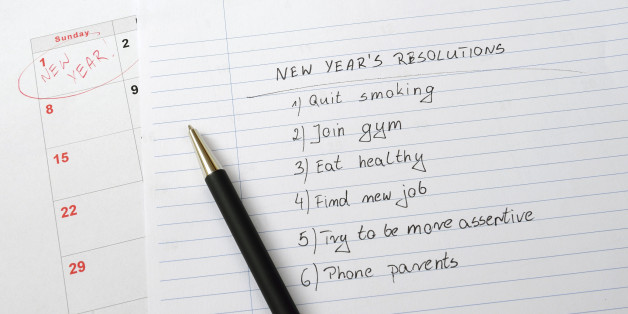 Sunday
1
NEW
YEAR!
2
8
9
15
22
29
NEW YEAR'S RESOLUTIONS
1) Quit smoking
2) Join gym
3) Eat healthy
4) Find new job
5) Try to be more assertive
6) Phone parents